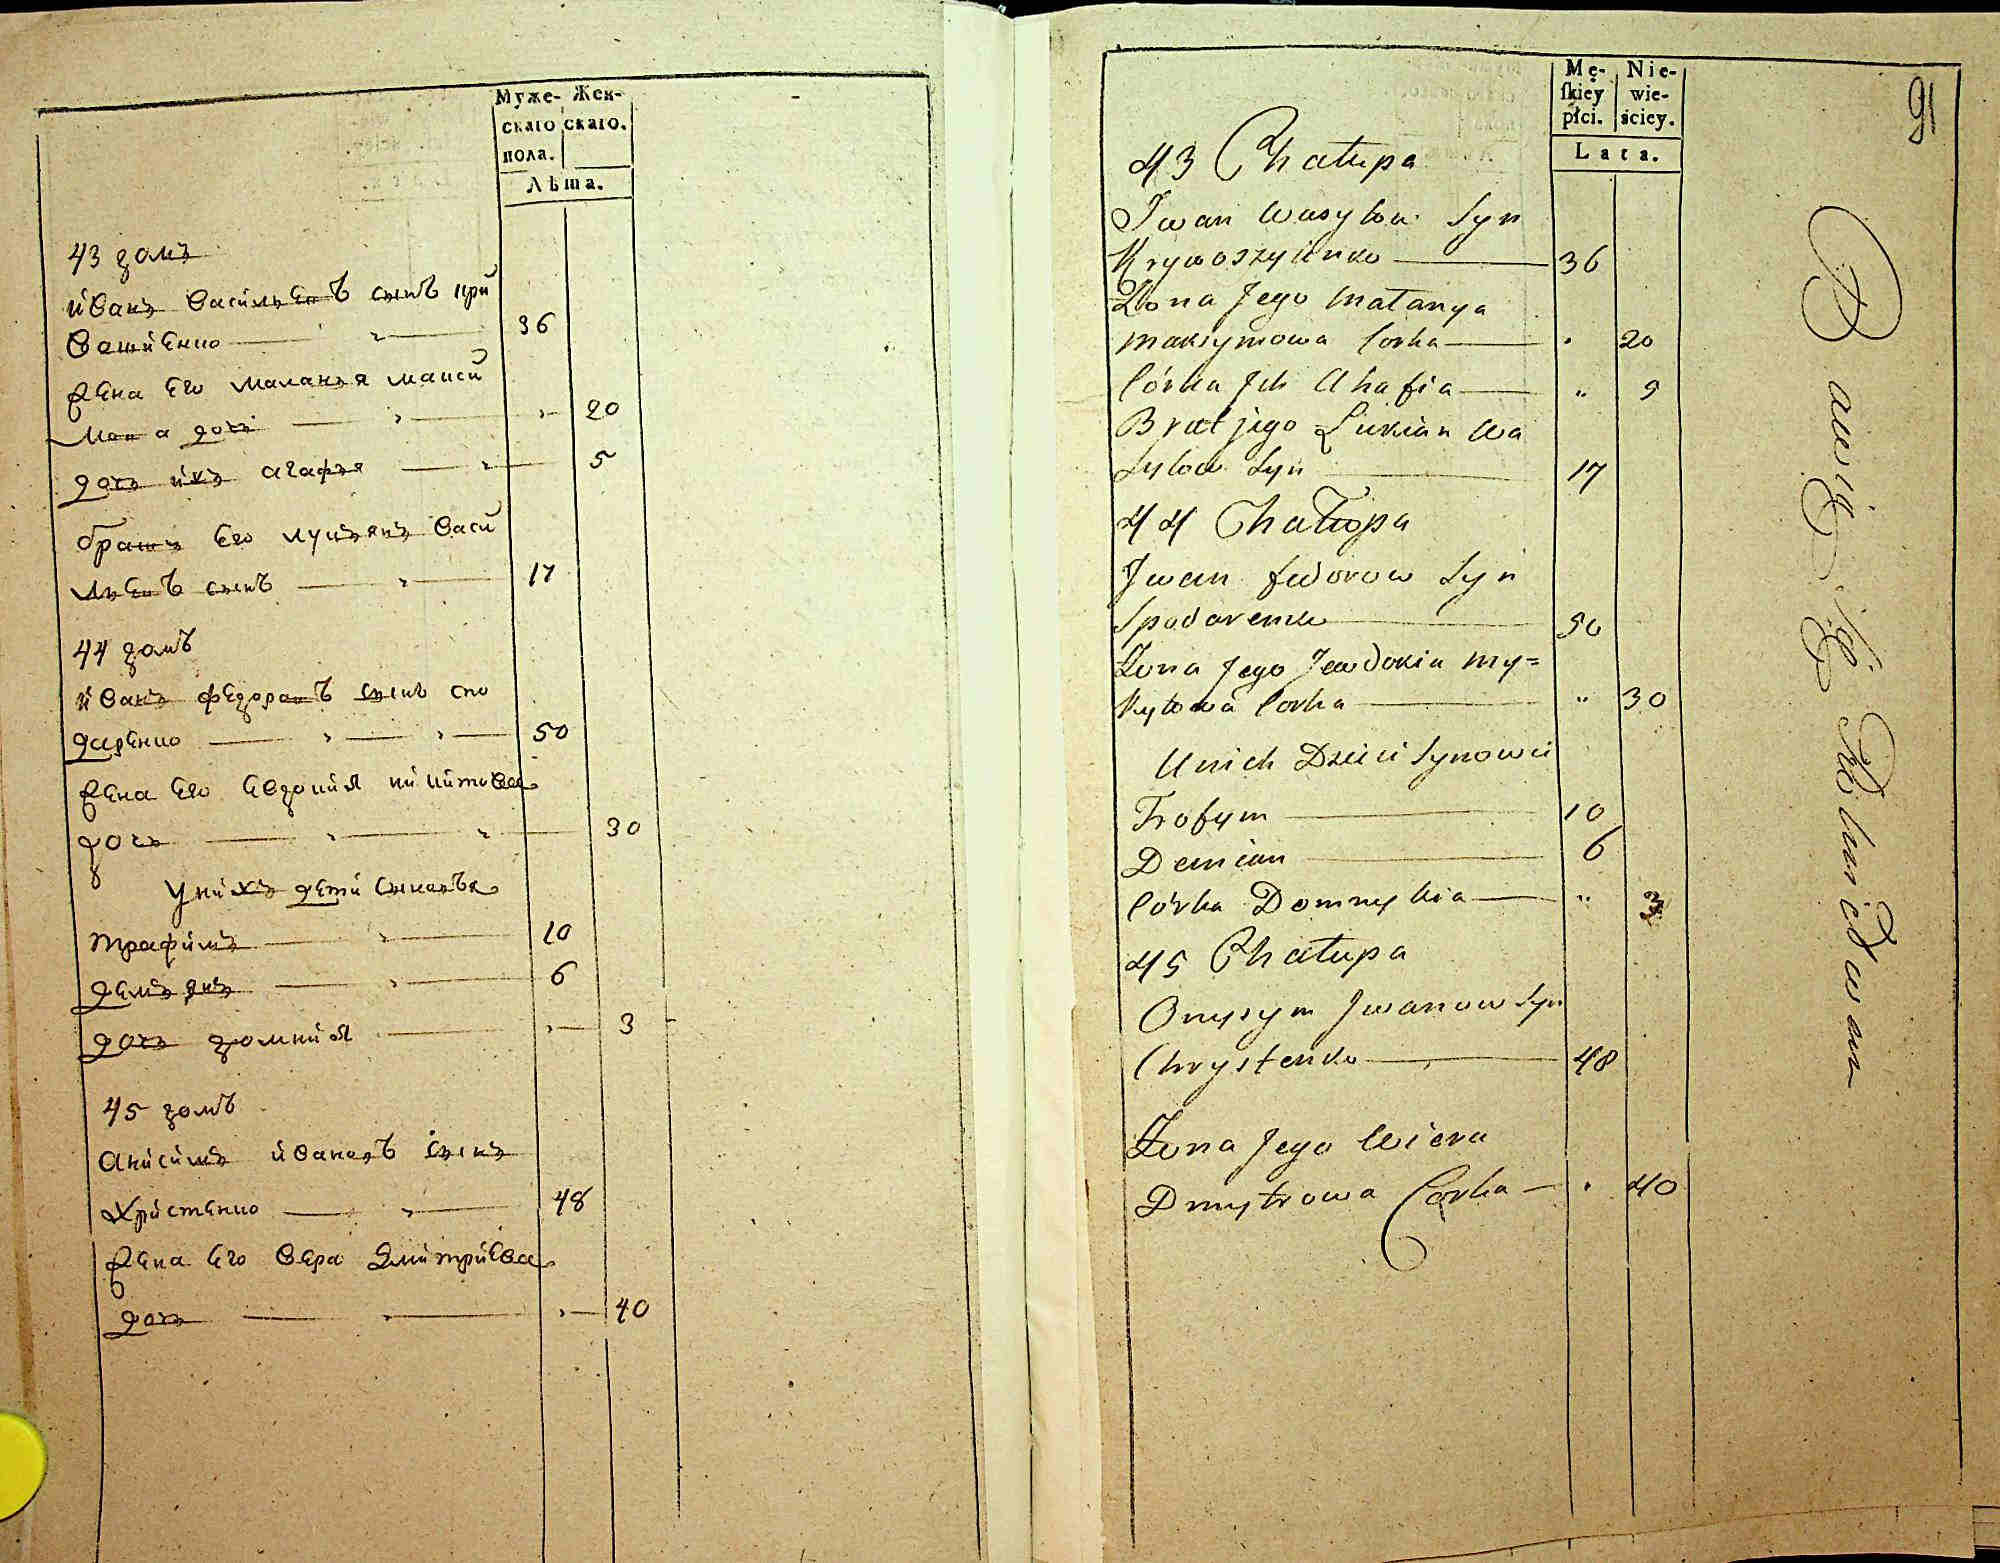 Муже- Жен-
скаго скаго.
пола.
Лѣта.
43 домъ
Иванъ Васильевъ сынъ кри
вошиенко 36
Жена Его Маланья макси
мова дочь 20
дочь ихъ агафья 5
братъ Его лукьянъ васи
льевъ сынъ 17
44 домъ
Иванъ федоровъ сынъ спо
даренко 50
Жена Его Евдокия никитова
дочь 30
У нихъ дети сыновья
трафимъ 10
демьянъ 6
дочь домникия 3
45 домъ
Анисимъ ивановъ сынъ
Христенко 48
Жена Его Вера Дмитриева
дочь 40
Mę- Nie-
ſkiey wie-
płci. ściey.
Lata.
91
43 Chałupa
Iwan Wasylow Syn
Krywoszyienko 36
Żona Jego Małanya
Maksymowa Corka 20
Córka Ich Ahafia 5
Brat jego Łukian Wa
sylow Syn 17
44 Chałupa
Iwan Fedorow Syn
Spodarenko 50
Żona Jego Jewdokia My=
kytowa Corka 30
U nich Dzieci Synowie
Trofym 10
Demian 6
Córka Domnykia 3
45 Chałupa
Onysym Iwanow Syn
Chrystenko 48
Żona Jego Wiera
Dmytrowa Corka 40